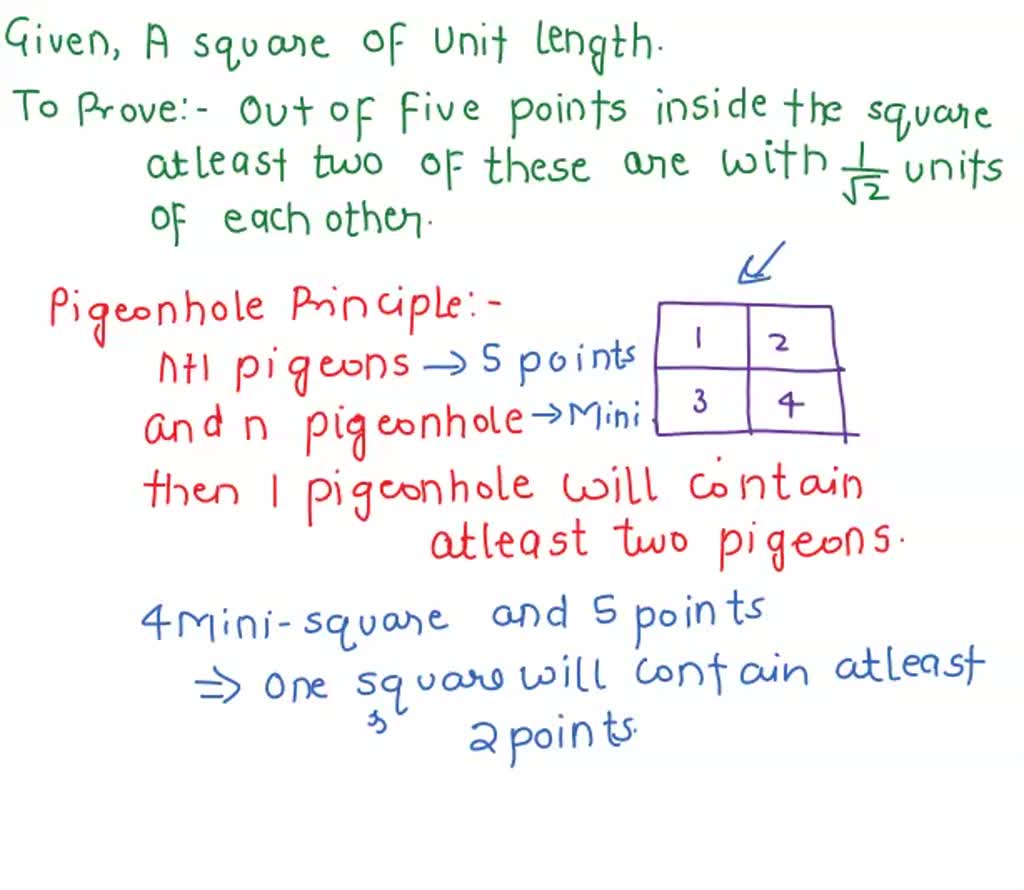 Given, A square of unit length.
To Prove:- Out of five points inside the square
atleast two of these are with 1/√2 units
of each other.
Pigeonhole Principle:-
n+1 pigeons → 5 points
and n pigeonhole → Mini
1 2
3 4
then 1 pigeonhole will contain
atleast two pigeons.
4 Mini-square and 5 points
⇒ One square will contain atleast
2 points.